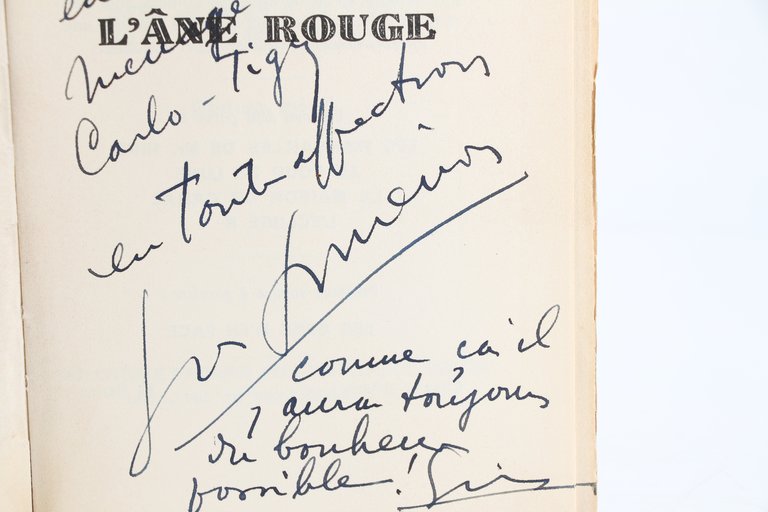 L'ÂNE ROUGE
ménage
Carlo - Tigy
en toute affection
Simenon
comme ça il
y aura toujours
du bonheur
possible !
Sim